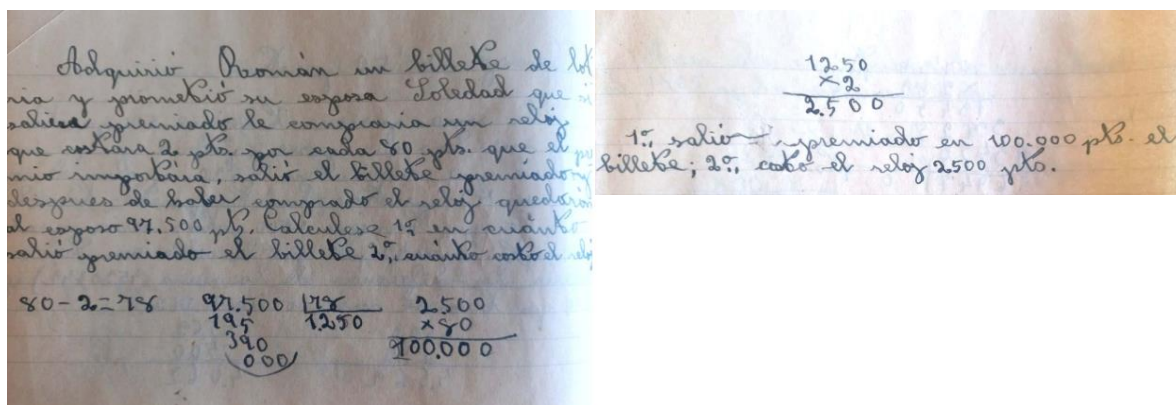 Adquirió Román un billete de lot
ria y prometió su esposa Soledad que si
saliera premiado le compraria un reloj
que costára 2 pts. por cada 80 pts. que el pr
mio importára, salió el billete premiado y
despues de haber comprado el reloj quedarón
al esposo 97.500 pts. Calculese 1º, en cuánto
salió premiado el billete 2º, cuánto costo el reloj
80-2=78 97.500 78 2500
195 1.250 ×80
390 100.000
000
1250
×2
2.500
1º, salió premiado en 100.000 pts. el
billete; 2º, costó el reloj 2500 pts.